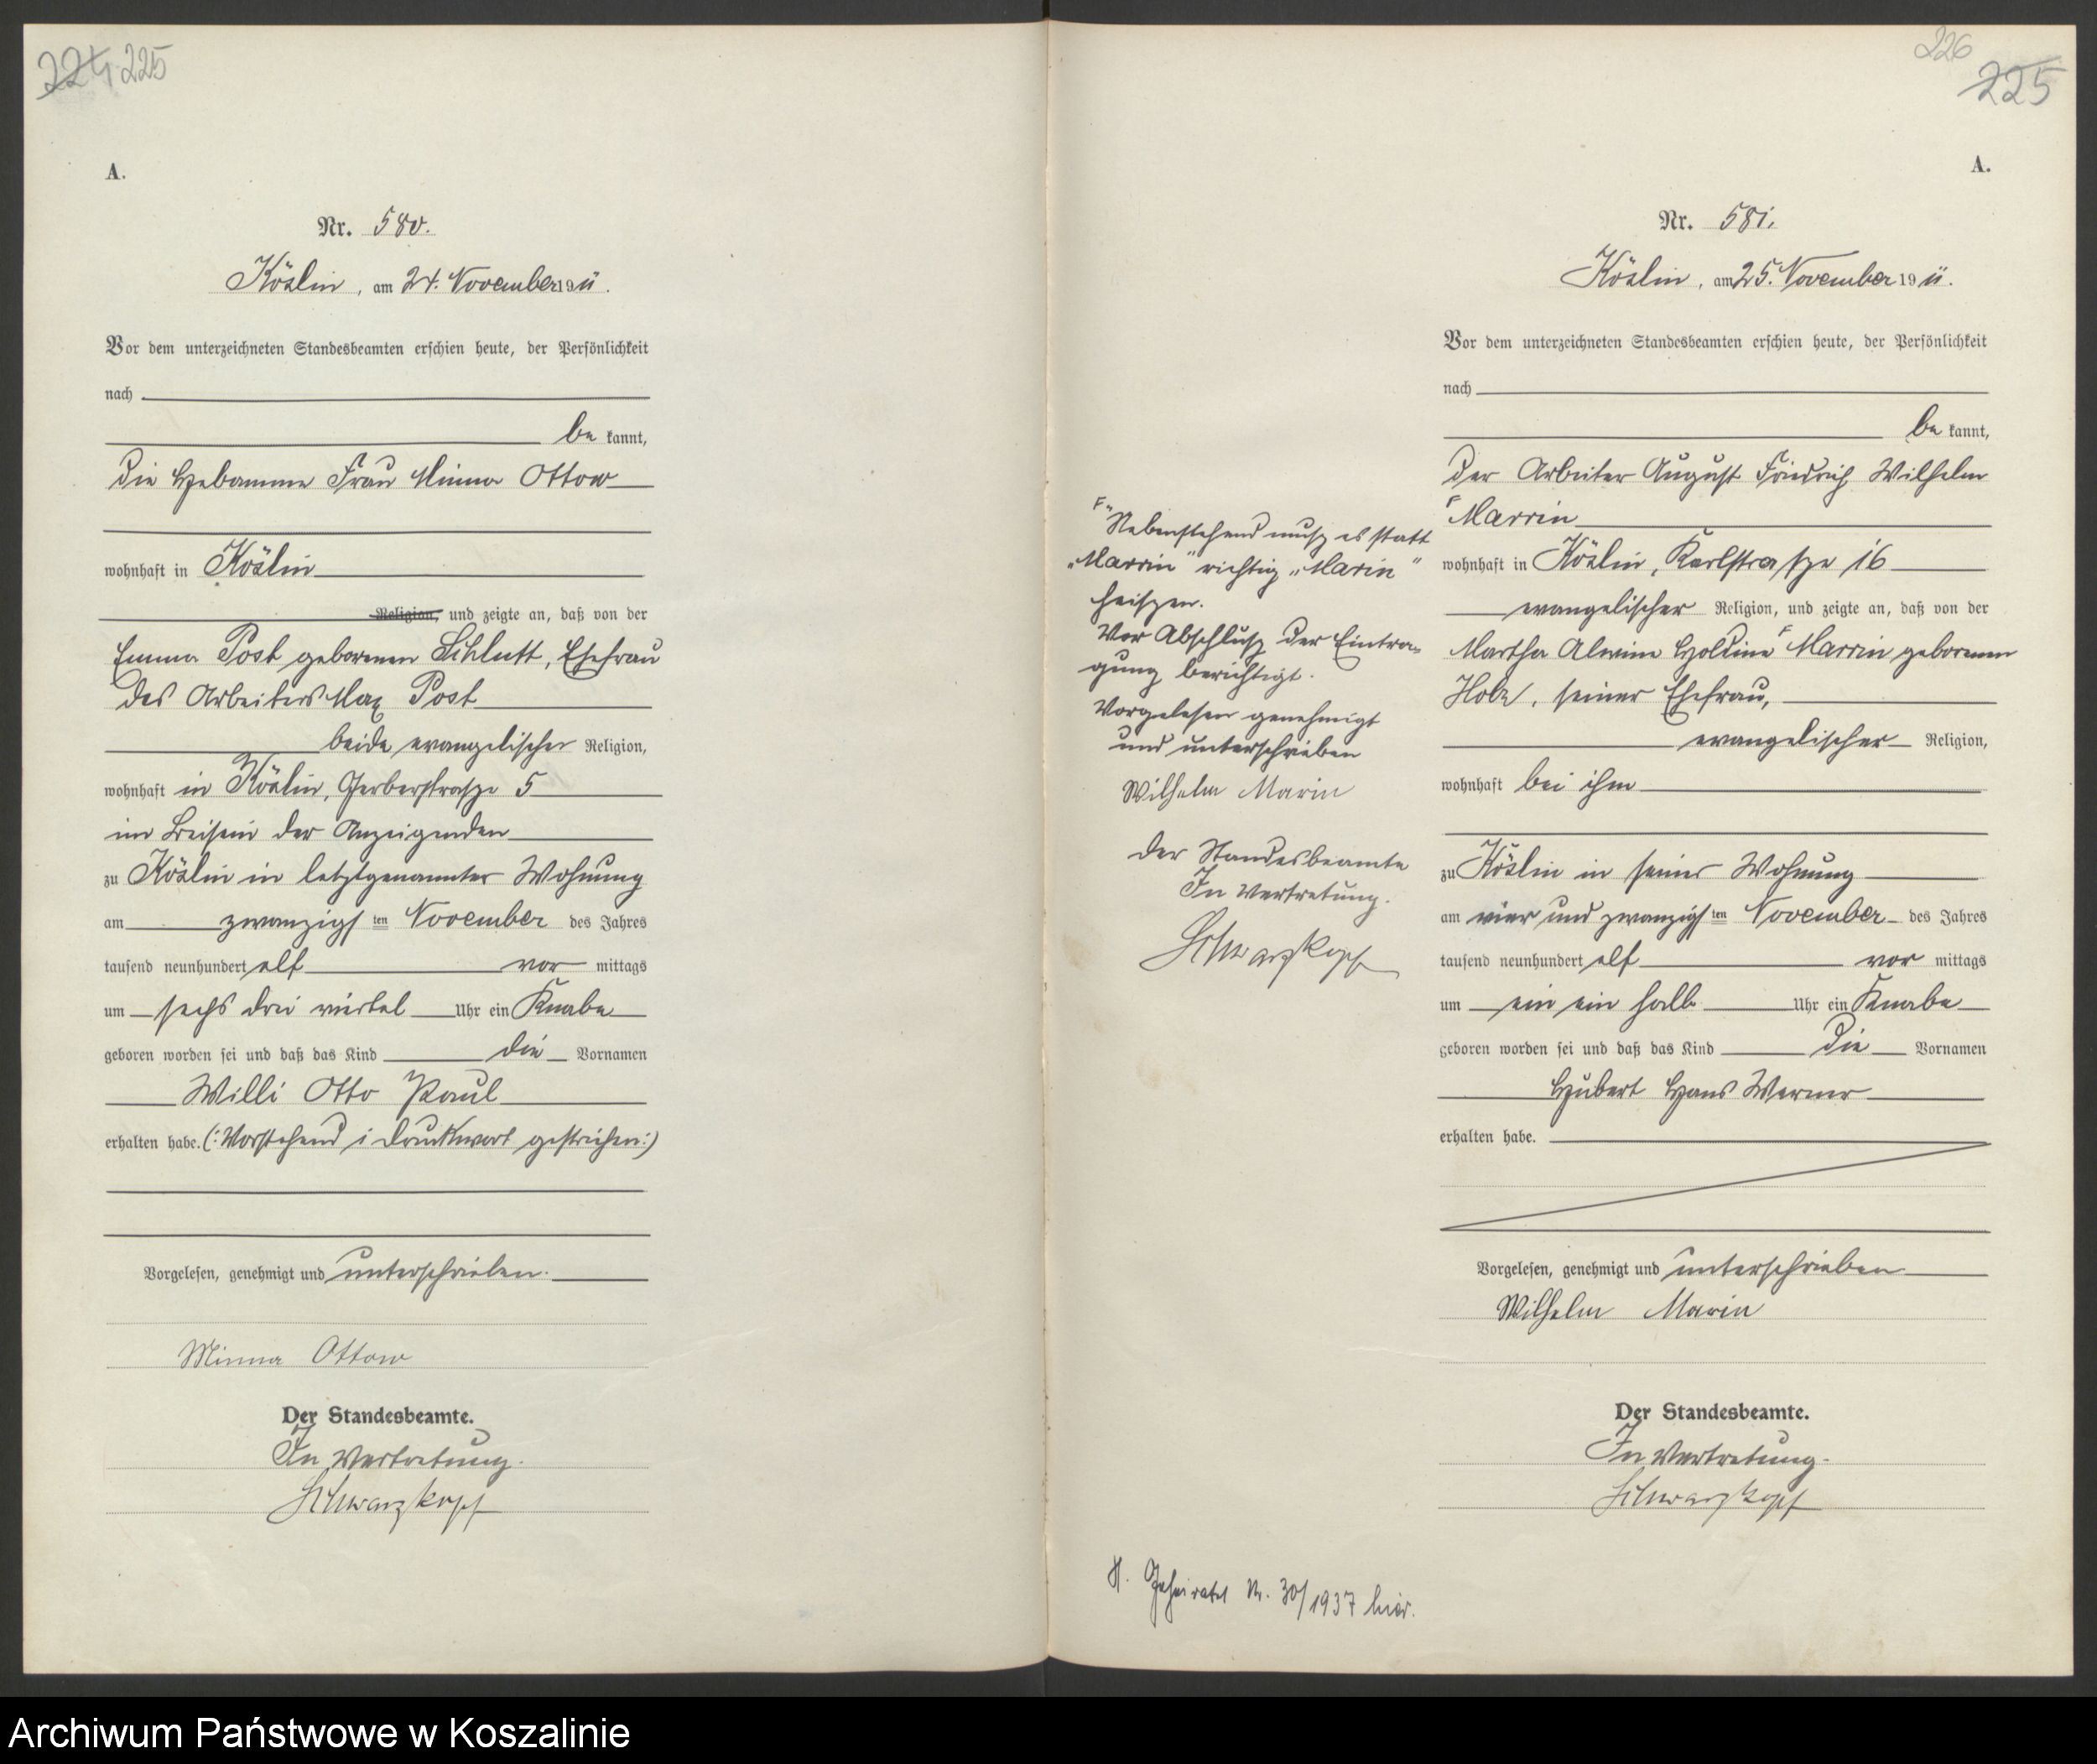 224 225
A.
Nr. 580.
Köslin, am 24. November 1911.
Vor dem unterzeichneten Standesbeamten erschien heute, der Persönlichkeit
nach
be kannt,
die Hebamme Frau Minna Ottow
wohnhaft in Köslin
Religion, und zeigte an, daß von der
Emma Post geborenen Schlutt, Ehefrau
des Arbeiters Max Post
beide evangelischer Religion,
wohnhaft in Köslin, Gerberstrasze 5
im Beisein der Anzeigenden
zu Köslin in letztgenannter Wohnung
am zwanzigsten November des Jahres
tausend neunhundert elf vor mittags
um sechs drei viertel Uhr ein Knabe
geboren worden sei und daß das Kind die Vornamen
Willi Otto Paul
erhalten habe. (: Vorstehend 1 Druckwort gestrichen :)
Vorgelesen, genehmigt und unterschrieben.
Minna Ottow
Der Standesbeamte.
In Vertretung.
Schwarzkopf
226
225
A.
Nr. 581.
Köslin, am 25. November 1911.
Vor dem unterzeichneten Standesbeamten erschien heute, der Persönlichkeit
nach
be kannt,
der Arbeiter August Friedrich Wilhelm
F Marrin
wohnhaft in Köslin, Karlstrasze 16
evangelischer Religion, und zeigte an, daß von der
Martha Alwine Holdine F Marrin geborenen
Holz, seiner Ehefrau,
evangelischer Religion,
wohnhaft bei ihm
zu Köslin in seiner Wohnung
am vier und zwanzigsten November des Jahres
tausend neunhundert elf vor mittags
um ein ein halb Uhr ein Knabe
geboren worden sei und daß das Kind die Vornamen
Hubert Hans Werner
erhalten habe.
Vorgelesen, genehmigt und unterschrieben
Wilhelm Marin
Der Standesbeamte.
In Vertretung.
Schwarzkopf
F Nebenstehend musz es statt
„Marrin" richtig „Marin"
heiszen.
Vor Abschlusz der Eintra-
gung berichtigt.
Vorgelesen genehmigt
und unterschrieben
Wilhelm Marin
Der Standesbeamte
In Vertretung.
Schwarzkopf
H. Geheiratet Nr. 30/1937 hier.
Archiwum Państwowe w Koszalinie